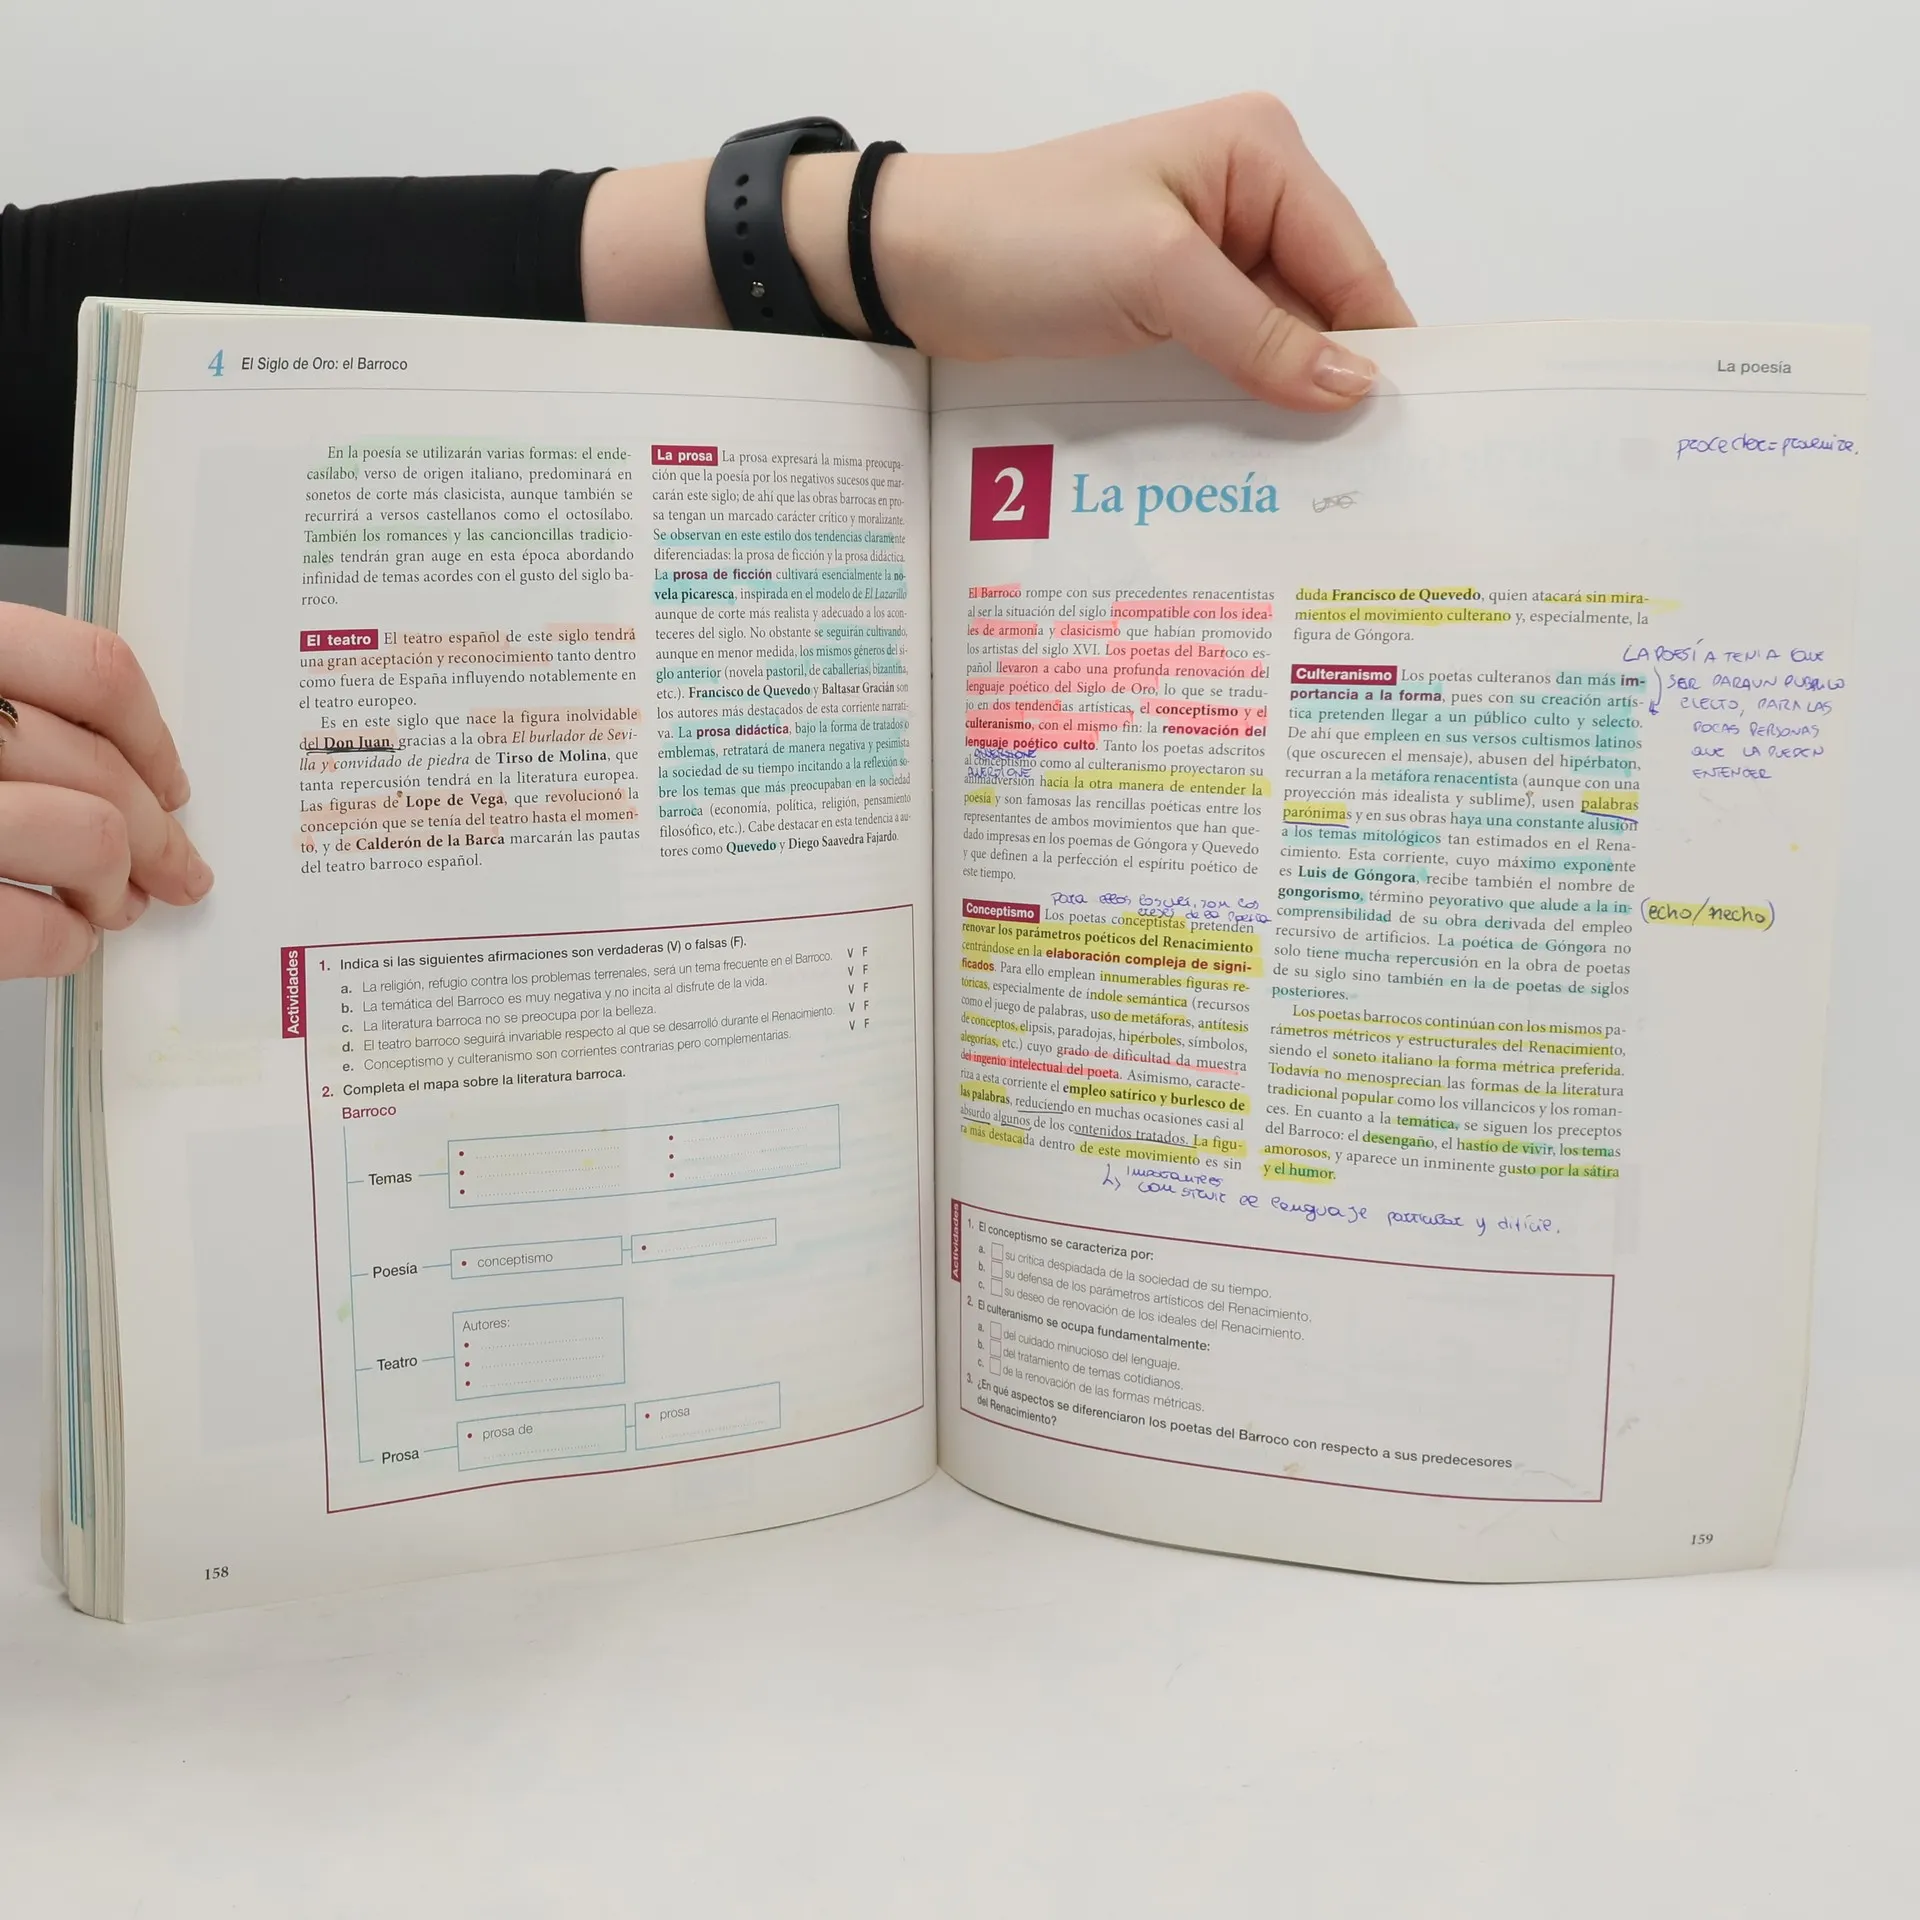 4 El Siglo de Oro: el Barroco
En la poesía se utilizarán varias formas: el ende-
casílabo, verso de origen italiano, predominará en
sonetos de corte más clasicista, aunque también se
recurrirá a versos castellanos como el octosílabo.
También los romances y las cancioncillas tradicio-
nales tendrán gran auge en esta época abordando
infinidad de temas acordes con el gusto del siglo ba-
rroco.
El teatro El teatro español de este siglo tendrá
una gran aceptación y reconocimiento tanto dentro
como fuera de España influyendo notablemente en
el teatro europeo.
Es en este siglo que nace la figura inolvidable
del Don Juan, gracias a la obra El burlador de Sevi-
lla y convidado de piedra de Tirso de Molina, que
tanta repercusión tendrá en la literatura europea.
Las figuras de Lope de Vega, que revolucionó la
concepción que se tenía del teatro hasta el momen-
to, y de Calderón de la Barca marcarán las pautas
del teatro barroco español.
La prosa La prosa expresará la misma preocupa-
ción que la poesía por los negativos sucesos que mar-
carán este siglo; de ahí que las obras barrocas en pro-
sa tengan un marcado carácter crítico y moralizante.
Se observan en este estilo dos tendencias claramente
diferenciadas: la prosa de ficción y la prosa didáctica.
La prosa de ficción cultivará esencialmente la no-
vela picaresca, inspirada en el modelo de El Lazarillo
aunque de corte más realista y adecuado a los acon-
teceres del siglo. No obstante se seguirán cultivando,
aunque en menor medida, los mismos géneros del si-
glo anterior (novela pastoril, de caballerías, bizantina,
etc.). Francisco de Quevedo y Baltasar Gracián son
los autores más destacados de esta corriente narrati-
va. La prosa didáctica, bajo la forma de tratados o
emblemas, retratará de manera negativa y pesimista
la sociedad de su tiempo incitando a la reflexión so-
bre los temas que más preocupaban en la sociedad
barroca (economía, política, religión, pensamiento
filosófico, etc.). Cabe destacar en esta tendencia a au-
tores como Quevedo y Diego Saavedra Fajardo.
Actividades
1. Indica si las siguientes afirmaciones son verdaderas (V) o falsas (F).
a. La religión, refugio contra los problemas terrenales, será un tema frecuente en el Barroco. V F
b. La temática del Barroco es muy negativa y no incita al disfrute de la vida. V F
c. La literatura barroca no se preocupa por la belleza. V F
d. El teatro barroco seguirá invariable respecto al que se desarrolló durante el Renacimiento. V F
e. Conceptismo y culteranismo son corrientes contrarias pero complementarias. V F
2. Completa el mapa sobre la literatura barroca.
Barroco
Temas
Poesía • conceptismo
Teatro
Autores:
Prosa
• prosa de
• prosa
158
La poesía
2 La poesía
El Barroco rompe con sus precedentes renacentistas
al ser la situación del siglo incompatible con los idea-
les de armonía y clasicismo que habían promovido
los artistas del siglo XVI. Los poetas del Barroco es-
pañol llevaron a cabo una profunda renovación del
lenguaje poético del Siglo de Oro, lo que se tradu-
jo en dos tendencias artísticas, el conceptismo y el
culteranismo, con el mismo fin: la renovación del
lenguaje poético culto. Tanto los poetas adscritos
al conceptismo como al culteranismo proyectaron su
animadversión hacia la otra manera de entender la
poesía y son famosas las rencillas poéticas entre los
representantes de ambos movimientos que han que-
dado impresas en los poemas de Góngora y Quevedo
y que definen a la perfección el espíritu poético de
este tiempo.
Conceptismo Los poetas conceptistas pretenden
renovar los parámetros poéticos del Renacimiento
centrándose en la elaboración compleja de signi-
ficados. Para ello emplean innumerables figuras re-
tóricas, especialmente de índole semántica (recursos
como el juego de palabras, uso de metáforas, antítesis
de conceptos, elipsis, paradojas, hipérboles, símbolos,
alegorías, etc.) cuyo grado de dificultad da muestra
del ingenio intelectual del poeta. Asimismo, caracte-
riza a esta corriente el empleo satírico y burlesco de
las palabras, reduciendo en muchas ocasiones casi al
absurdo algunos de los contenidos tratados. La figu-
ra más destacada dentro de este movimiento es sin
IMPORTANTES
construir el lenguaje particular y difícil.
duda Francisco de Quevedo, quien atacará sin mira-
mientos el movimiento culterano y, especialmente, la
figura de Góngora.
LA POESÍA TENIA QUE
SER PARA UN PUBBLICO
ELECTO, PARA LAS
POCAS PERSONAS
QUE LA PUEDEN
ENTENDER
Culteranismo Los poetas culteranos dan más im-
portancia a la forma, pues con su creación artís-
tica pretenden llegar a un público culto y selecto.
De ahí que empleen en sus versos cultismos latinos
(que oscurecen el mensaje), abusen del hipérbaton,
recurran a la metáfora renacentista (aunque con una
proyección más idealista y sublime), usen palabras
parónimas y en sus obras haya una constante alusión
a los temas mitológicos tan estimados en el Rena-
cimiento. Esta corriente, cuyo máximo exponente
es Luis de Góngora, recibe también el nombre de
gongorismo, término peyorativo que alude a la in-
(echo/hecho)
comprensibilidad de su obra derivada del empleo
recursivo de artificios. La poética de Góngora no
solo tiene mucha repercusión en la obra de poetas
de su siglo sino también en la de poetas de siglos
posteriores.
Los poetas barrocos continúan con los mismos pa-
rámetros métricos y estructurales del Renacimiento,
siendo el soneto italiano la forma métrica preferida.
Todavía no menosprecian las formas de la literatura
tradicional popular como los villancicos y los roman-
ces. En cuanto a la temática, se siguen los preceptos
del Barroco: el desengaño, el hastío de vivir, los temas
amorosos, y aparece un inminente gusto por la sátira
y el humor.
Actividades
1. El conceptismo se caracteriza por:
a. su crítica despiadada de la sociedad de su tiempo.
b. su defensa de los parámetros artísticos del Renacimiento.
c. su deseo de renovación de los ideales del Renacimiento.
2. El culteranismo se ocupa fundamentalmente:
a. del cuidado minucioso del lenguaje.
b. del tratamiento de temas cotidianos.
c. de la renovación de las formas métricas.
3. ¿En qué aspectos se diferenciaron los poetas del Barroco con respecto a sus predecesores
del Renacimiento?
159